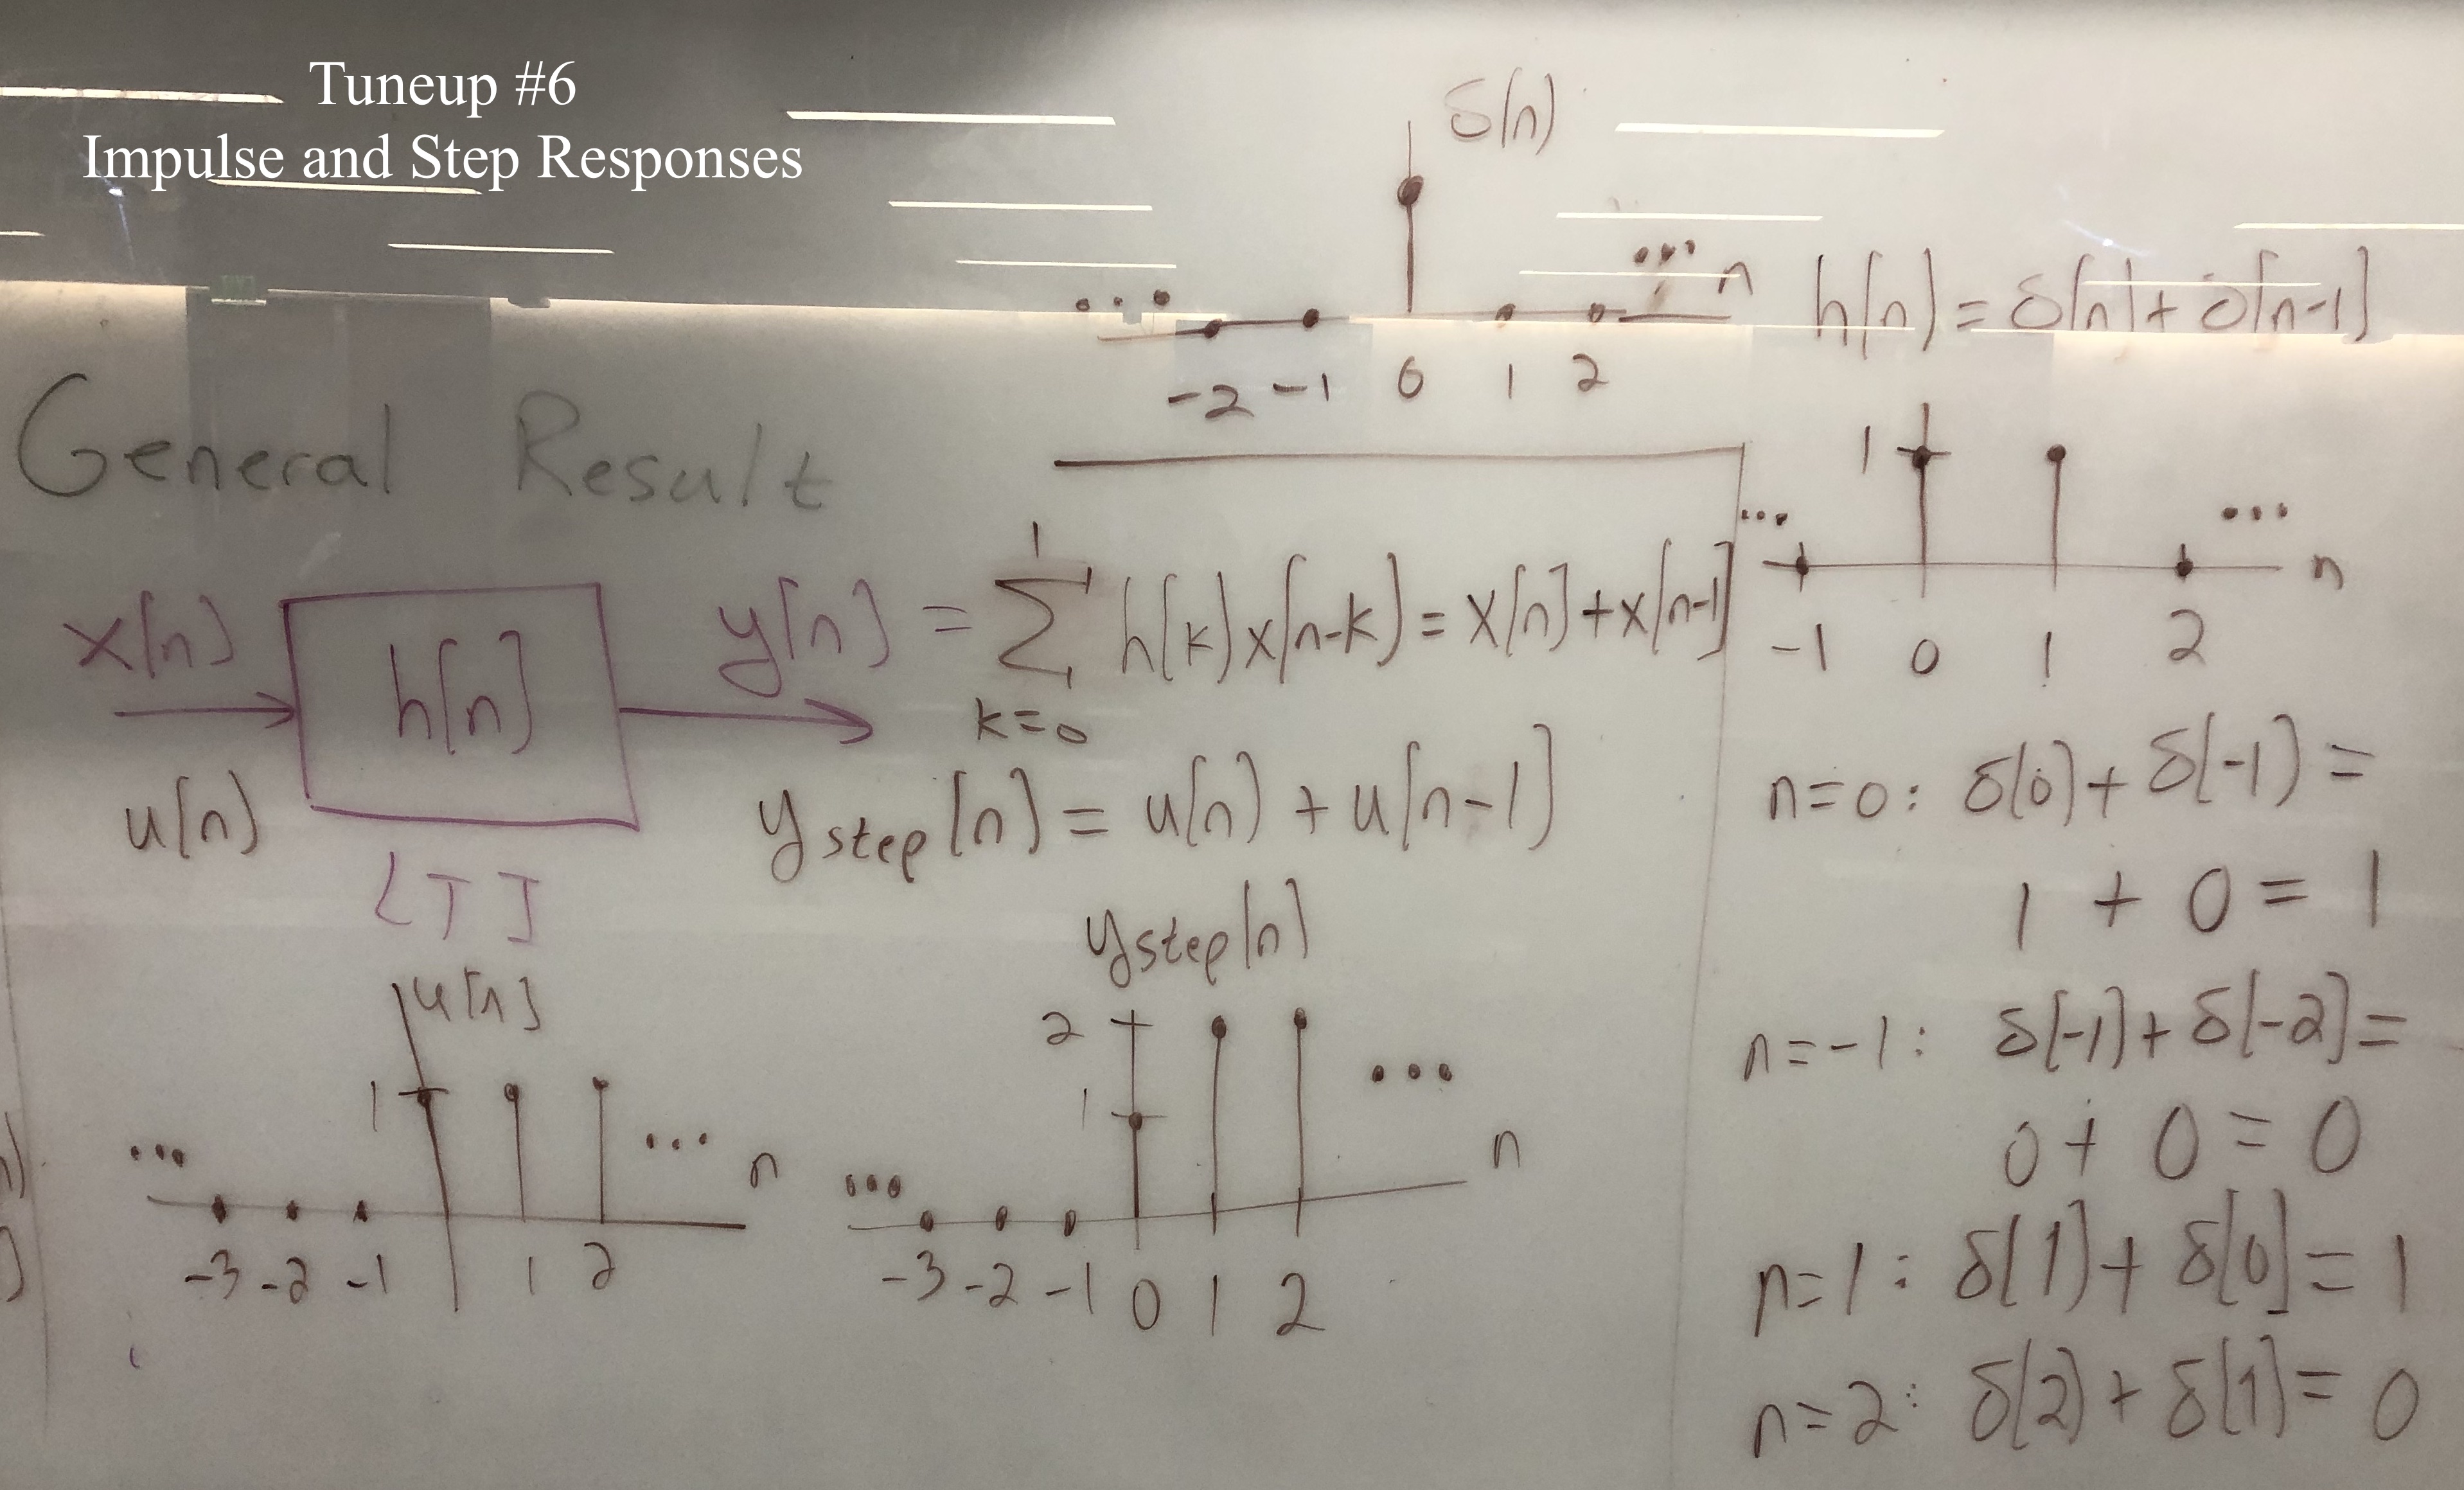 Tuneup #6
Impulse and Step Responses
δ[n]
... ... n
-2 -1 0 1 2
h[n] = δ[n] + δ[n-1]
1
... ... n
-1 0 1 2
General Result
x[n] h[n] y[n] = ∑ h[k] x[n-k] = x[n] + x[n-1]
1
k=0
u[n]
LTI
y step [n] = u[n] + u[n-1]
u[n]
1
... ... n
-3 -2 -1 1 2
y step [n]
2
1
... ... n
-3 -2 -1 0 1 2
n=0: δ[0] + δ[-1] =
1 + 0 = 1
n=-1: δ[-1] + δ[-2] =
0 + 0 = 0
n=1: δ[1] + δ[0] = 1
n=2: δ[2] + δ[1] = 0